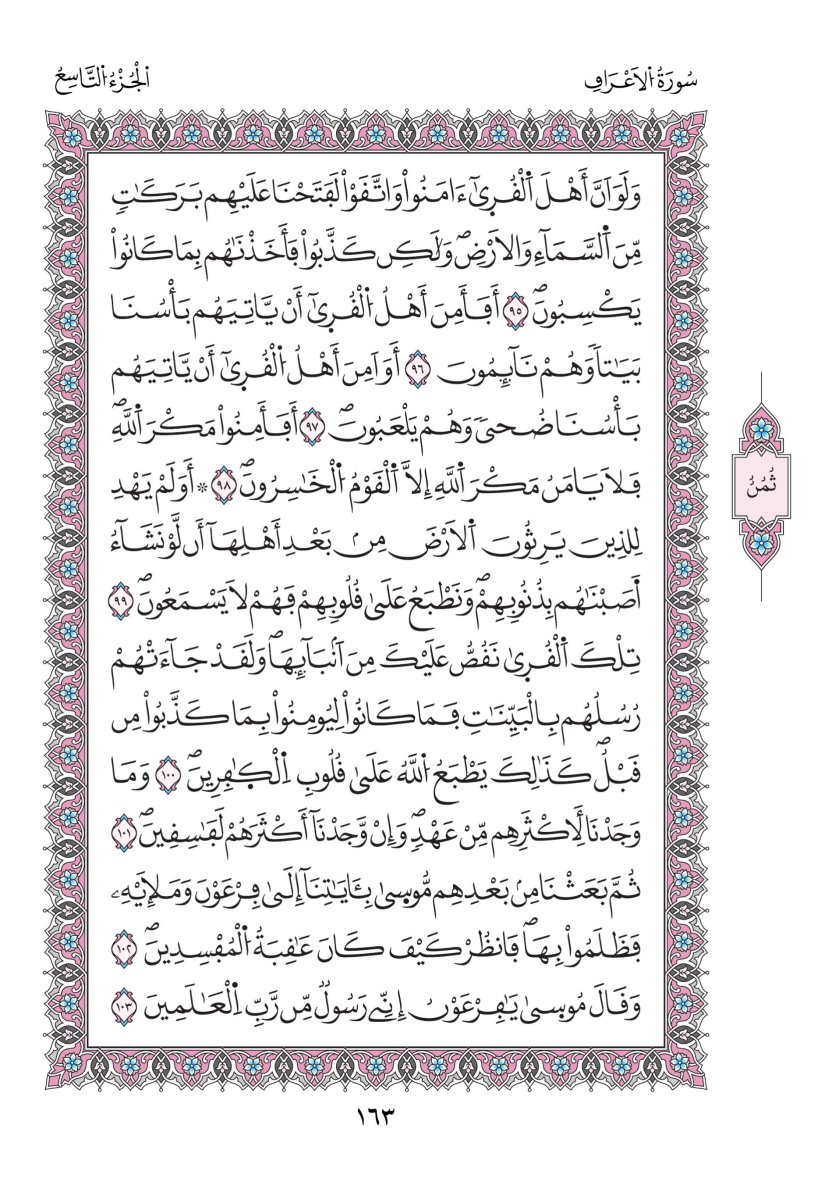 سُورَةُ اُ۬لَاعْرَافِ
اُ۬لْجُزْءُ اُ۬لتَّاسِعُ
وَلَوَ اَنَّ أَهْلَ اَ۬لْقُر۪ىٰٓ ءَامَنُواْ وَاتَّقَوْاْ لَفَتَحْنَا عَلَيْهِم بَرَكَٰتٖ
مِّنَ اَ۬لسَّمَآءِ وَالَارْضِۖ وَلَٰكِن كَذَّبُواْ فَأَخَذْنَٰهُم بِمَا كَانُواْ
يَكْسِبُونَۖ ٩٥ أَفَأَمِنَ أَهْلُ اُ۬لْقُر۪ىٰٓ أَنْ يَّاتِيَهُم بَأْسُنَا
بَيَٰتاٗ وَهُمْ نَآئِمُونَ ٩٦ أَوَ اَمِنَ أَهْلُ اُ۬لْقُر۪ىٰٓ أَنْ يَّاتِيَهُم
بَأْسُنَا ضُحيٗ وَهُمْ يَلْعَبُونَۖ ٩٧ أَفَأَمِنُواْ مَكْرَ اَ۬للَّهِۖ
فَلَا يَامَنُ مَكْرَ اَ۬للَّهِ إِلَّا اَ۬لْقَوْمُ اُ۬لْخَٰسِرُونَۖ ٩٨ ۞ أَوَلَمْ يَهْدِ
لِلذِينَ يَرِثُونَ اَ۬لَارْضَ مِنۢ بَعْدِ أَهْلِهَآ أَن لَّوْ نَشَآءُ
اَ۬صَبْنَٰهُم بِذُنُوبِهِمْۖ وَنَطْبَعُ عَلَىٰ قُلُوبِهِمْ فَهُمْ لَا يَسْمَعُونَۖ ٩٩
تِلْكَ اَ۬لْقُر۪ىٰ نَقُصُّ عَلَيْكَ مِنَ اَنۢبَآئِهَاۖ وَلَقَدْ جَآءَتْهُمْ
رُسُلُهُم بِالْبَيِّنَٰتِ فَمَا كَانُواْ لِيُومِنُواْ بِمَا كَذَّبُواْ مِن
قَبْلُۖ كَذَٰلِكَ يَطْبَعُ اُ۬للَّهُ عَلَىٰ قُلُوبِ اِ۬لْكٰ۪فِرِينَۖ ١٠٠ وَمَا
وَجَدْنَا لِأَكْثَرِهِم مِّنْ عَهْدٖۖ وَإِنْ وَّجَدْنَآ أَكْثَرَهُمْ لَفَٰسِقِينَۖ ١٠١
ثُمَّ بَعَثْنَا مِنۢ بَعْدِهِم مُّوس۪ىٰ بِـَٔايَٰتِنَآ إِلَىٰ فِرْعَوْنَ وَمَلَإِيْهِۦ
فَظَلَمُواْ بِهَاۖ فَانظُرْ كَيْفَ كَانَ عَٰقِبَةُ اُ۬لْمُفْسِدِينَۖ ١٠٢
وَقَالَ مُوس۪ىٰ يَٰفِرْعَوْنُ إِنِّے رَسُولٞ مِّن رَّبِّ اِ۬لْعَٰلَمِينَ ١٠٣
ثُمُنُ
١٦٣